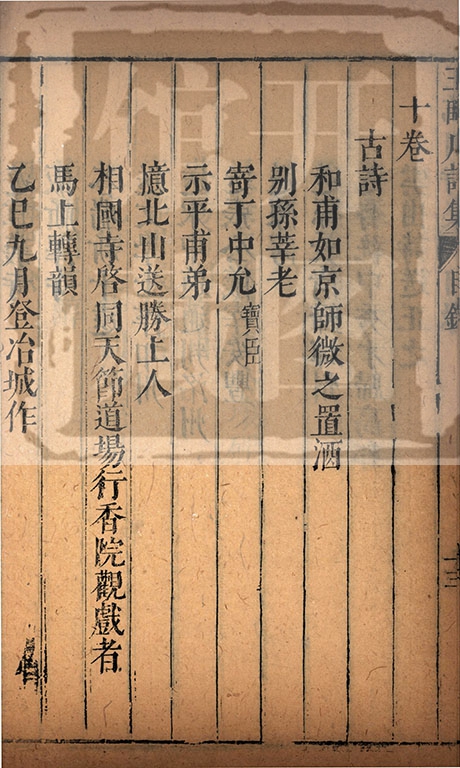 王荊公詩集 目錄
十三
十卷
古詩
和甫如京師微之置酒
别孫莘老
寄丁中允 寶臣
示平甫弟
憶北山送勝上人
相國寺啓同天節道場行香院觀戲者
馬上轉韻
乙巳九月登冶城作